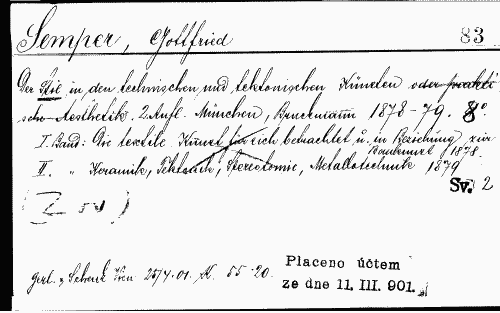 Semper, Gottfried 83
Der Stil in den technischen und tektonischen Künsten oder prakti
sche Aesthetik. 2. Aufl. München, Bruckmann 1878-79. 8°.
I. Band: Die textile Kunst für sich betrachtet u. in Beziehung zur
Baukunst 1878.
II. " Keramik, Tektonik, Stereotomie, Metallotechnik 1879
Sv. 2
Wien 25/4.01. K. 55.20.
Placeno účtem
ze dne 11. III. 901.